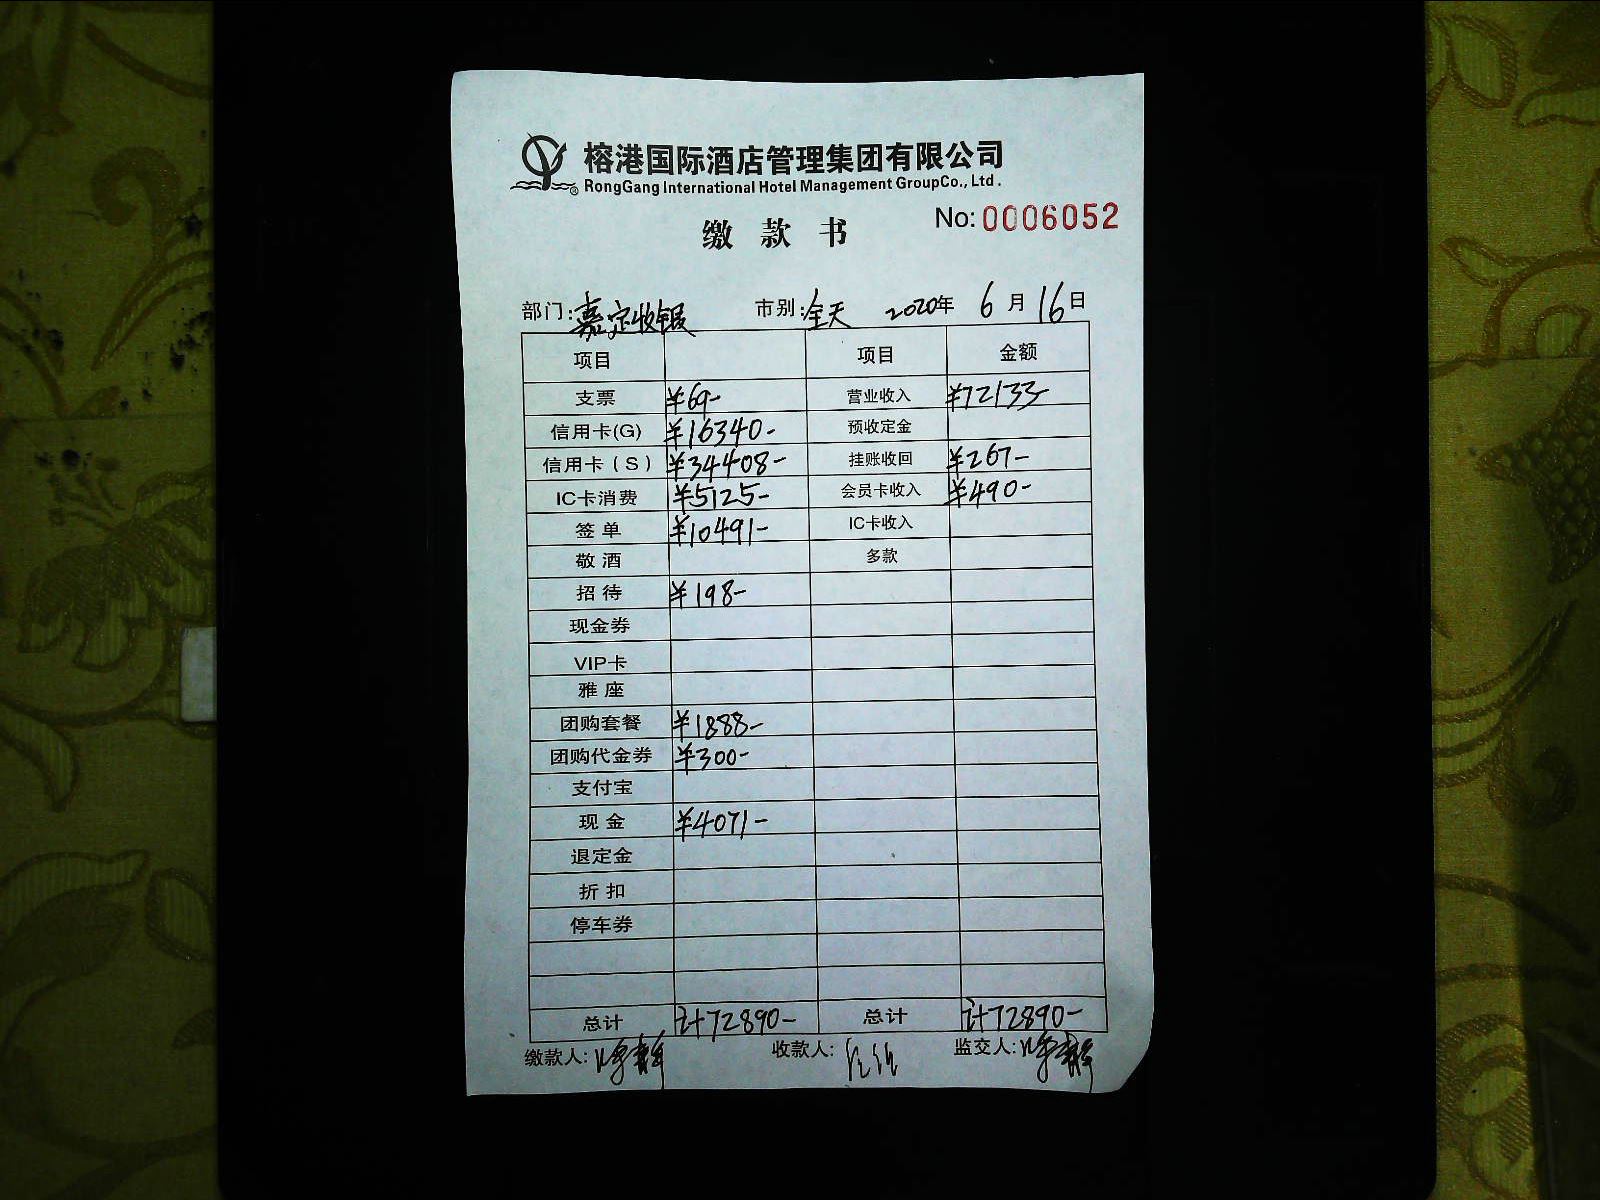 榕港国际酒店管理集团有限公司
®RongGang International Hotel Management GroupCo., Ltd.
缴款书 No: 0006052
部门: 嘉定收银 市别: 全天 2020年 6月 16日
项目 项目 金额
支票 ¥69- 营业收入 ¥72133-
信用卡(G) ¥16340- 预收定金
信用卡(S) ¥34408- 挂账收回 ¥267-
IC卡消费 ¥5125- 会员卡收入 ¥490-
签单 ¥10491- IC卡收入
敬酒 多款
招待 ¥198-
现金券
VIP卡
雅座
团购套餐 ¥1888-
团购代金券 ¥300-
支付宝
现金 ¥4071-
退定金
折扣
停车券
总计 计72890- 总计 计72890-
缴款人: 收款人: 监交人: